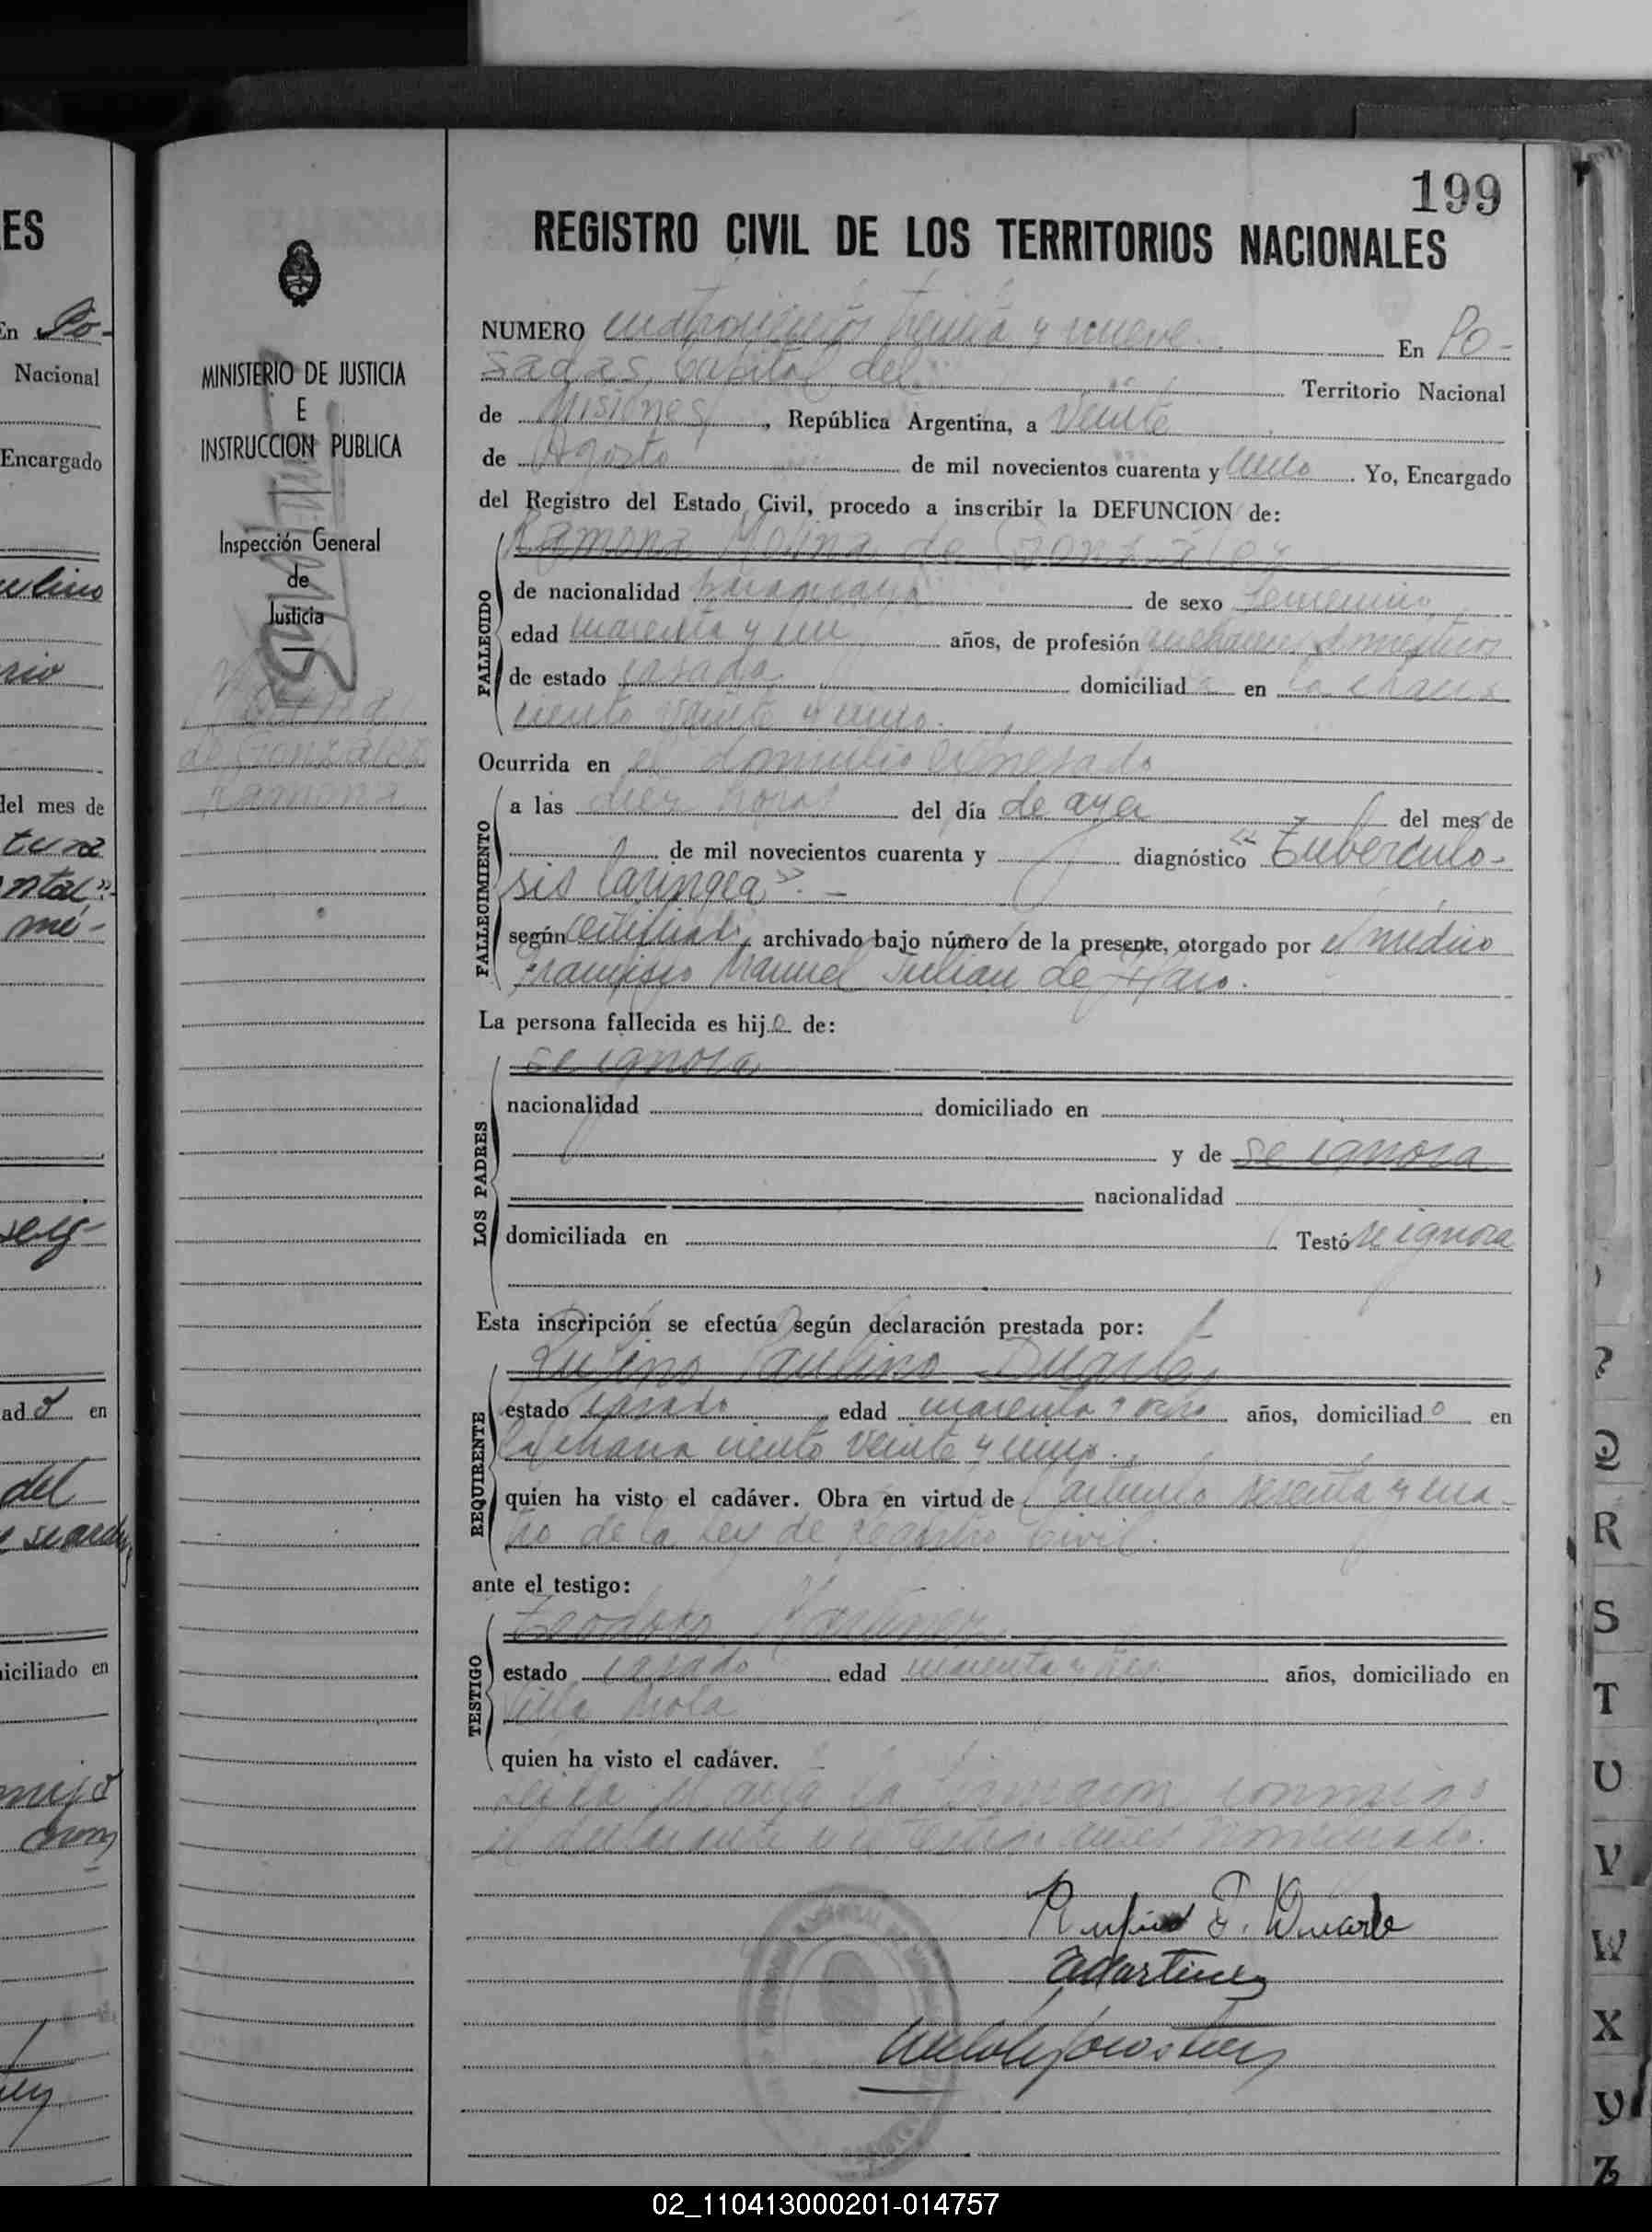 199
REGISTRO CIVIL DE LOS TERRITORIOS NACIONALES
NUMERO cuatrocientos treinta y nueve. En Po-
sadas, Capital del Territorio Nacional
de Misiones, República Argentina, a veinte
de Agosto de mil novecientos cuarenta y uno. Yo, Encargado
del Registro del Estado Civil, procedo a inscribir la DEFUNCION de:
Ramona Molina de González
FALLECIDO
de nacionalidad paraguaya de sexo femenino
edad cuarenta y un años, de profesión quehaceres domésticos
de estado casada domiciliada en la chacra
ciento veinte y uno.
Ocurrida en el domicilio expresado
FALLECIMIENTO
a las diez horas del día de ayer del mes de
de mil novecientos cuarenta y diagnóstico "Tuberculo-
sis laringea". -
según certificado, archivado bajo número de la presente, otorgado por el médico
Francisco Manuel Julian de Haro.
La persona fallecida es hija de:
LOS PADRES
se ignora
nacionalidad domiciliado en
y de se ignora
nacionalidad
domiciliada en Testó se ignora
Esta inscripción se efectúa según declaración prestada por:
REQUIRENTE
Rufino Paulino Duarte,
estado casado, edad cuarenta y ocho años, domiciliado en
la chacra ciento veinte y uno.
quien ha visto el cadáver. Obra en virtud de artículo sesenta y cua-
tro de la Ley de Registro Civil.
ante el testigo:
TESTIGO
Teodoro Martinez
estado casado edad cuarenta y años, domiciliado en
Villa Mola
quien ha visto el cadáver.
Leida el acta la firmaron conmigo
el declarante y el testigo antes nombrado.
Rufino P. Duarte
Martinez
MINISTERIO DE JUSTICIA
E
INSTRUCCION PUBLICA
Inspección General
de
Justicia
Molina
de González
Ramona
ES
En Po-
Nacional
Encargado
del mes de
ntal".
mé-
en
del
iciliado en
?
Q
R
S
T
U
V
W
X
Y
Z
02_110413000201-014757